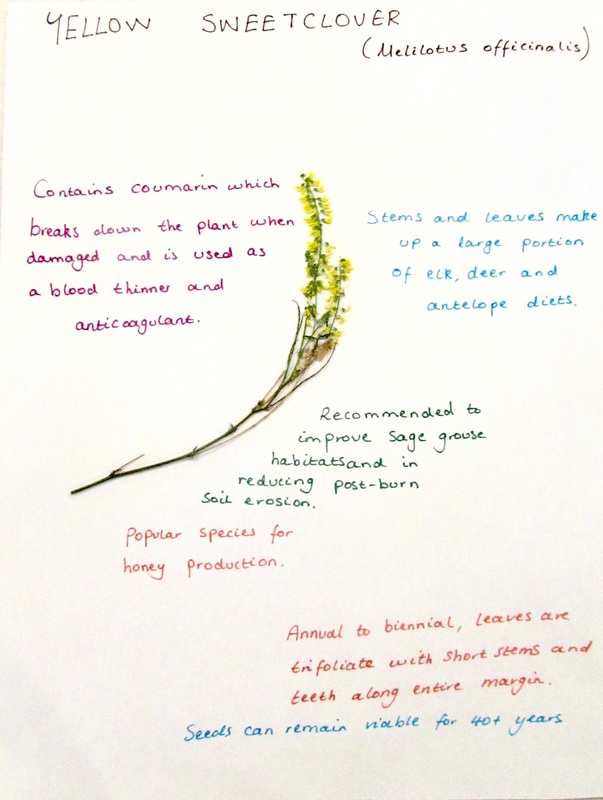 YELLOW SWEETCLOVER
(Melilotus officinalis)
Contains coumarin which
breaks down the plant when
damaged and is used as
a blood thinner and
anticoagulant.
Stems and leaves make
up a large portion
of elk, deer and
antelope diets.
Recommended to
improve sage grouse
habitats and in
reducing post-burn
soil erosion.
Popular species for
honey production.
Annual to biennial, leaves are
trifoliate with short stems and
teeth along entire margin.
Seeds can remain viable for 40+ years